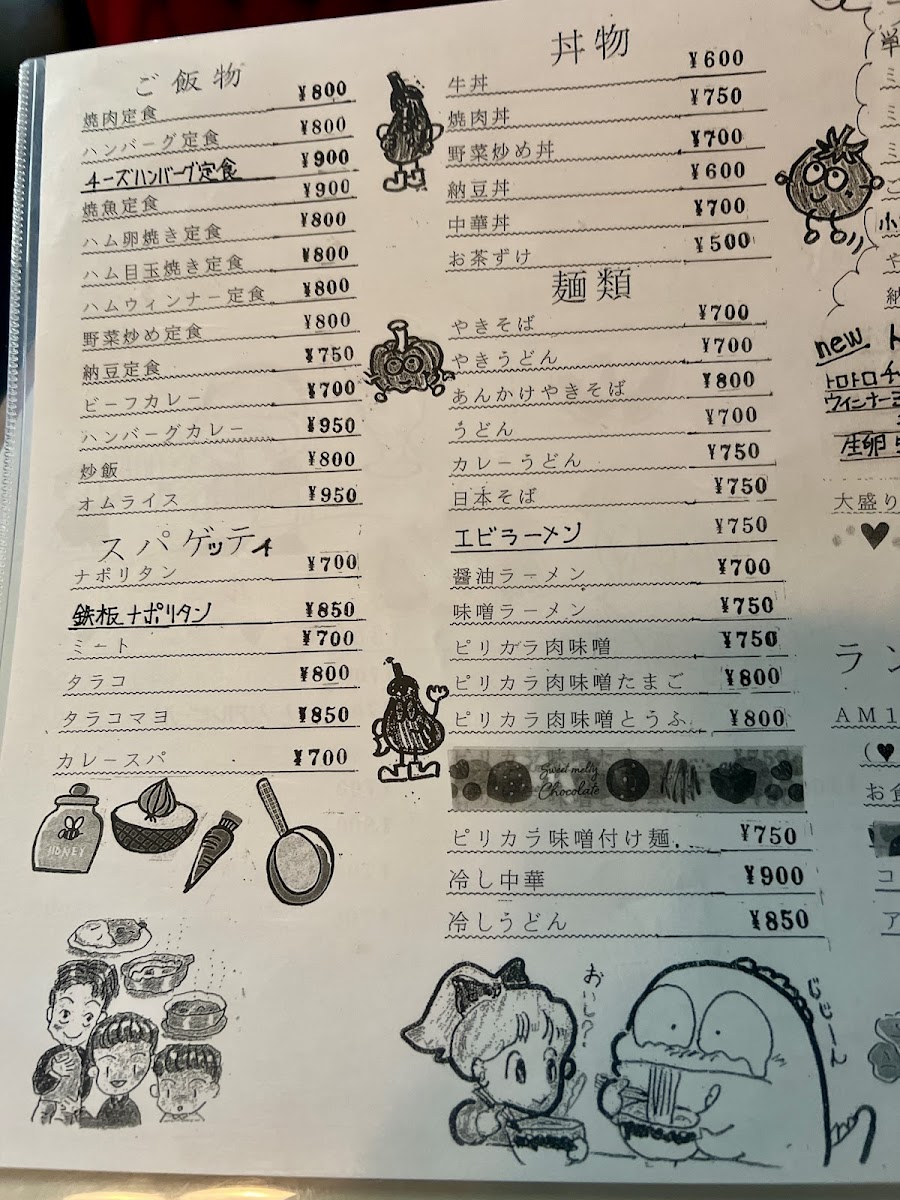 ご飯物
焼肉定食 ¥800
ハンバーグ定食 ¥800
チーズハンバーグ定食 ¥900
焼魚定食 ¥900
ハム卵焼き定食 ¥800
ハム目玉焼き定食 ¥800
ハムウィンナー定食 ¥800
野菜炒め定食 ¥800
納豆定食 ¥750
ビーフカレー ¥700
ハンバーグカレー ¥950
炒飯 ¥800
オムライス ¥950
スパゲッティ
ナポリタン ¥700
鉄板ナポリタン ¥850
ミート ¥700
タラコ ¥800
タラコマヨ ¥850
カレースパ ¥700
HONEY
丼物
牛丼 ¥600
焼肉丼 ¥750
野菜炒め丼 ¥700
納豆丼 ¥600
中華丼 ¥700
お茶ずけ ¥500
麺類
やきそば ¥700
やきうどん ¥700
あんかけやきそば ¥800
うどん ¥700
カレーうどん ¥750
日本そば ¥750
エビラーメン ¥750
醤油ラーメン ¥700
味噌ラーメン ¥750
ピリカラ肉味噌 ¥750
ピリカラ肉味噌たまご ¥800
ピリカラ肉味噌とうふ ¥800
Sweet melty
Chocolate
ピリカラ味噌付け麺 ¥750
冷し中華 ¥900
冷しうどん ¥850
おいし?
じぃーん
new
トロトロチ
ウィンナー
生卵
大盛り
ラン
AM1
(♥
お食
コ
ア